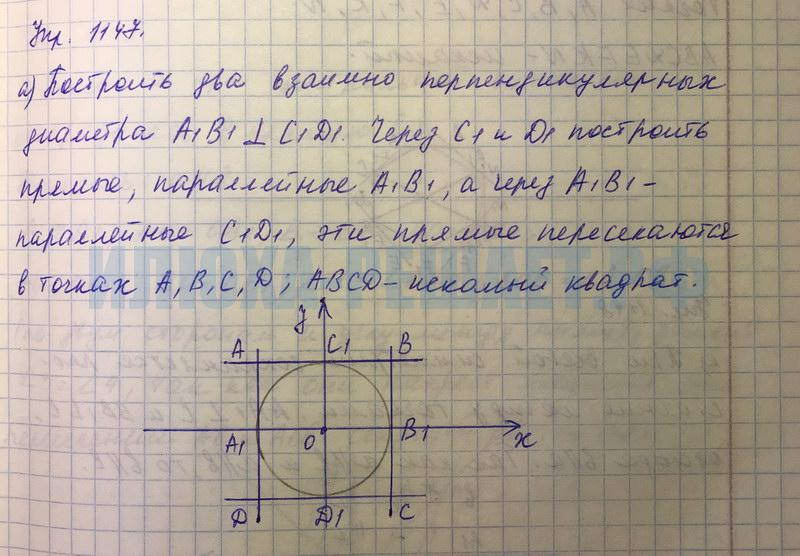 Упр. 1147.
а) Построить два взаимно перпендикулярных
диаметра A1B1 ⊥ C1D1. Через C1 и D1 построить
прямые, параллейные A1B1, а через A1B1 –
параллейные C1D1, эти прямые пересекаются
в точках A, B, C, D; ABCD – искомый квадрат.
y
A C1 B
A1 O B1 x
D D1 C